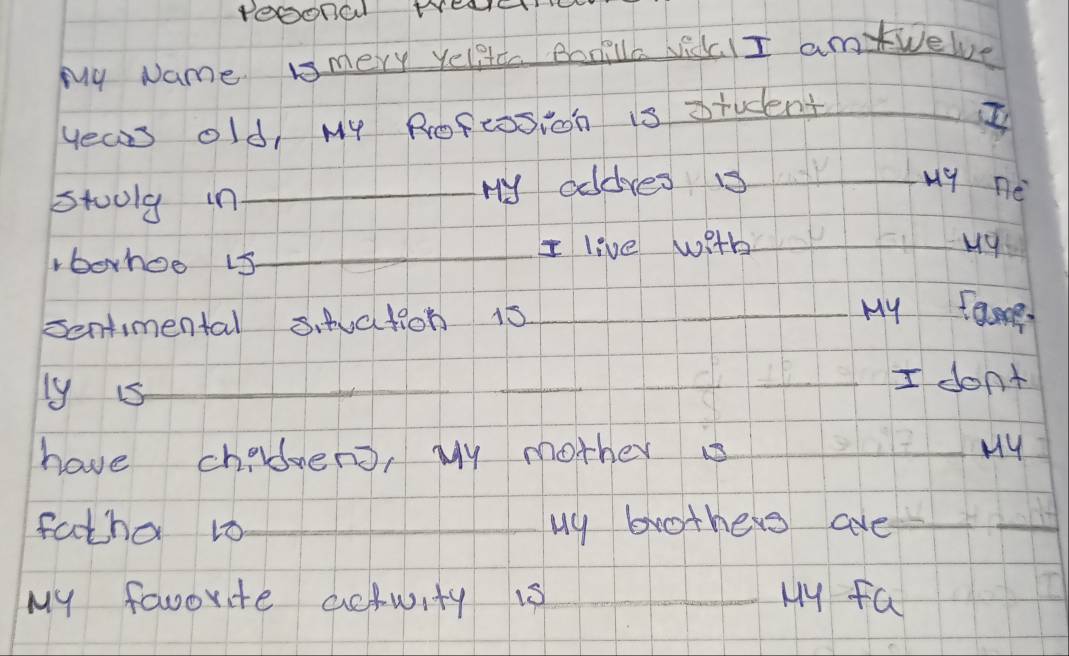 Pesonal
My Name is mery yelitca Bonilla vidal I am twelve
years old, My Profession is student I
study in My addres is My ne
rborhoo is I live with My
sentimental situation is My fami
ly is I dont
have childrens, My mother is My
father is My brothers are
My favorite activity is My Fa